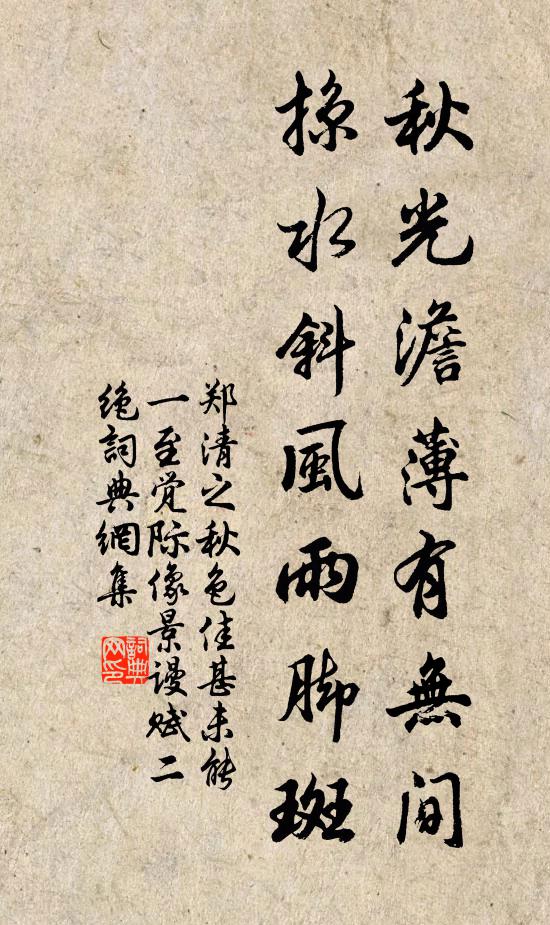 秋光澹薄有無間
掠水斜風雨脚斑
郑清之秋色佳甚未能
一至觉际像景谩赋二
绝詞典網集
詞典网印